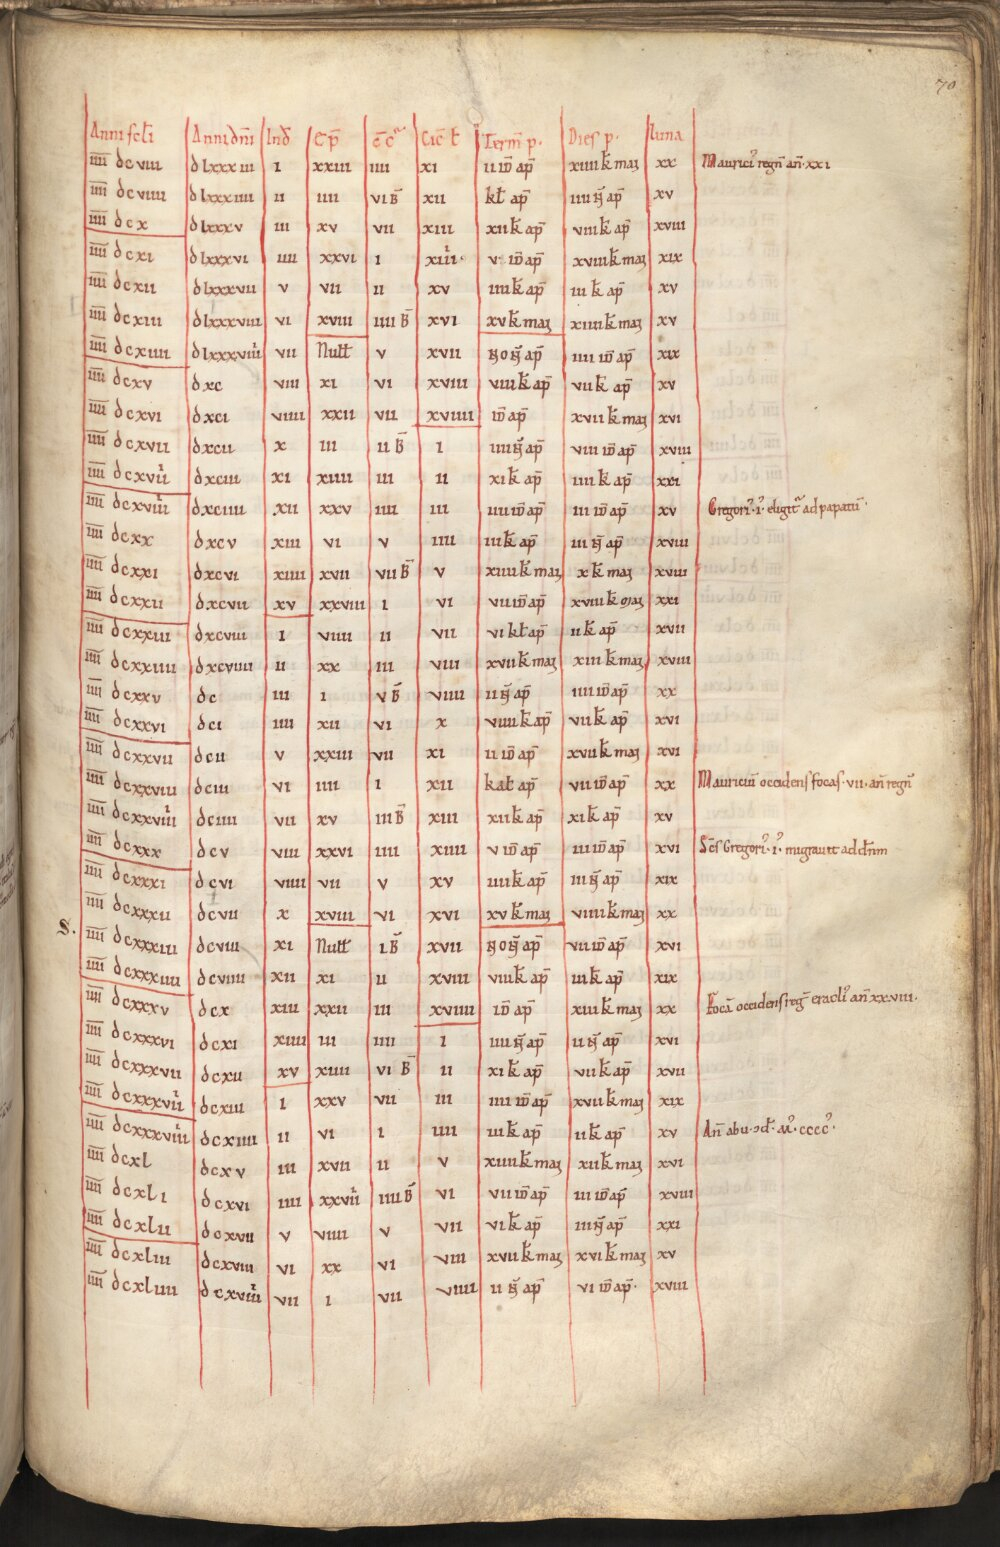 70
Anni scłi Anni dñi Ind Ep̄ c̄c Cic ł Term̄ p. Dies p. luna
īīīī dcviii dlxxxiii i xxiii iiii xi ii id̄ ap̄ xiiii k̄ mai xx Maurici' regn̄ an̄. xxi
īīīī dcviiii dlxxxiiii ii iiii vi B̄ xii kł ap̄ iiii n̄ ap̄ xv
īīīī dcx dlxxxv iii xv vii xiii xii k̄ ap̄ viii k̄ ap̄ xviii
īīīī dcxi dlxxxvi iiii xxvi i xiiii. v id̄ ap̄ xviii k̄ mai xix
īīīī dcxii dlxxxvii v vii ii xv iiii k̄ ap̄ iii k̄ ap̄ xv
īīīī dcxiii dlxxxviii vi xviii iiii B̄ xvi xv k̄ mai xiiii k̄ mai xv
īīīī dcxiiii dlxxxviiii vii Null v xvii non̄ ap̄ iiii id̄ ap̄ xix
īīīī dcxv dxc viii xi vi xviii viiii k̄ ap̄ vii k̄ ap̄ xv
īīīī dcxvi dxci viiii xxii vii xviiii id̄ ap̄ xvii k̄ mai xvi
īīīī dcxvii dxcii x iii ii B̄ i iiii n̄ ap̄ viii id̄ ap̄ xviii
īīīī dcxviii dxciii xi xiiii iii ii xi k̄ ap̄ iiii k̄ ap̄ xxi
īīīī dcxviiii dxciiii xii xxv iiii iii iiii id̄ ap̄ iii id̄ ap̄ xv Gregori'. i' eligit' ad papatū.
īīīī dcxx dxcv xiii vi v iiii iii k̄ ap̄ iii n̄ ap̄ xviii
īīīī dcxxi dxcvi xiiii xvii vii B̄ v xiiii k̄ mai x k̄ mai xviii
īīīī dcxxii dxcvii xv xxviii i vi vii id̄ ap̄ xviii k̄ mai xxi
īīīī dcxxiii dxcviii i viiii ii vii vi kł ap̄ ii k̄ ap̄ xvii
īīīī dcxxiiii dxcviiii ii xx iii viii xvii k̄ mai xiii k̄ mai xviii
īīīī dcxxv dc iii i v B̄ viiii ii n̄ ap̄ iiii id̄ ap̄ xx
īīīī dcxxvi dci iiii xii vi x viiii k̄ ap̄ vii k̄ ap̄ xvi
īīīī dcxxvii dcii v xxiii vii xi ii id̄ ap̄ xvii k̄ mai xvi
īīīī dcxxviii dciii vi iiii i xii kał ap̄ vii id̄ ap̄ xx Mauriciū occidens focas. vii. an̄ regn̄
īīīī dcxxviiii dciiii vii xv iii B̄ xiii xii k̄ ap̄ xi k̄ ap̄ xv
īīīī dcxxx dcv viii xxvi iiii xiiii v id̄ ap̄ iiii id̄ ap̄ xvi Sc̄s Gregori'. i'. migravit ad dn̄m
īīīī dcxxxi dcvi viiii vii v xv iiii k̄ ap̄ iiii n̄ ap̄ xix
īīīī dcxxxii dcvii x xviii vi xvi xv k̄ mai viiii k̄ mai xx
S. īīīī dcxxxiii dcviii xi Null i B̄ xvii non̄ ap̄ vii id̄ ap̄ xvi
īīīī dcxxxiiii dcviiii xii xi ii xviii viiii k̄ ap̄ iii k̄ ap̄ xix
īīīī dcxxxv dcx xiii xxii iii xviiii id̄ ap̄ xiii k̄ mai xx Focā occidens reḡ eracli' an̄ xx.viii.
īīīī dcxxxvi dcxi xiiii iii iiii i iiii n̄ ap̄ ii n̄ ap̄ xvi
īīīī dcxxxvii dcxii xv xiiii vi B̄ ii xi k̄ ap̄ vii k̄ ap̄ xvii
īīīī dcxxxviii dcxiii i xxv vii iii iiii id̄ ap̄ xvii k̄ mai xix
īīīī dcxxxviiii dcxiiii ii vi i iiii iii k̄ ap̄ ii k̄ ap̄ xv An̄ ab u. ↄd.
īīīī dcxl dcxv iii xvii ii v xiiii k̄ mai xii k̄ mai xvi
īīīī dcxli dcxvi iiii xxviii iiii B̄ vi vii id̄ ap̄ iii id̄ ap̄ xviii
īīīī dcxlii dcxvii v viiii v vii vi k̄ ap̄ iii n̄ ap̄ xxi
īīīī dcxliii dcxviii vi xx vi viii xvii k̄ mai xvi k̄ mai xv
īīīī dcxliiii dcxviiii vii i vii viiii ii n̄ ap̄ vi id̄ ap̄. xviii